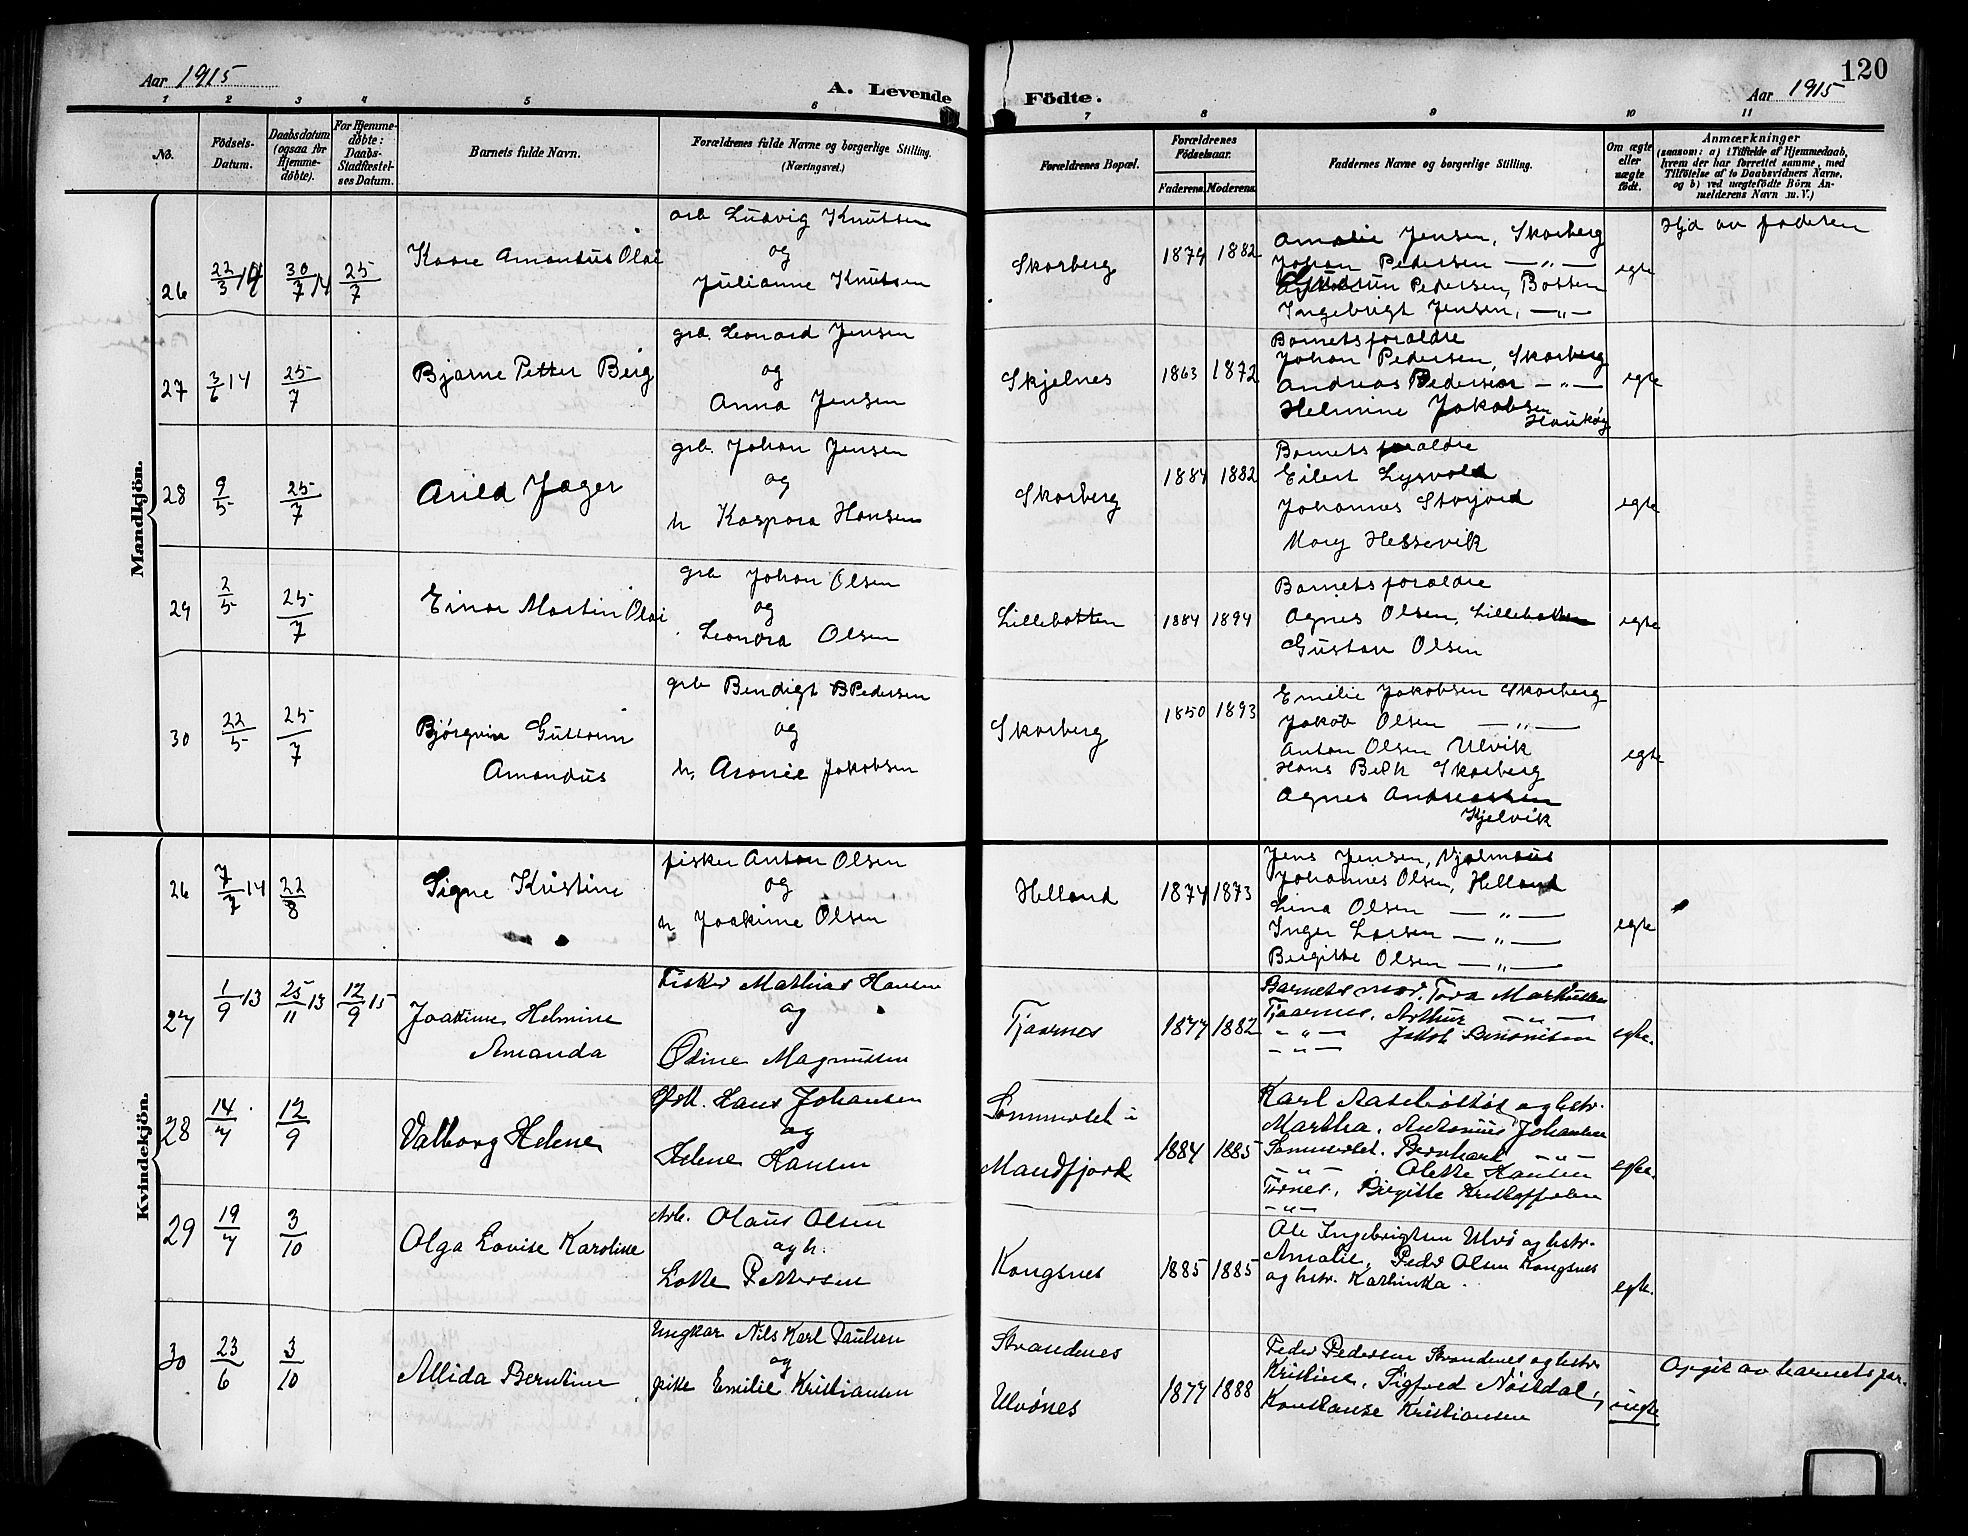 Aar 1915
A. Levende
Födte.
Aar 1915
120
1 2 3 4 5 6 7 8 9 10 11
No.
Födsels-
Datum.
Daabsdatum
(ogsaa for
Hjemme-
døbte).
For Hjemme-
døbte:
Daabs-
Stadfæstel-
ses Datum.
Barnets fulde Navn.
Forældrenes fulde Navne og borgerlige Stilling.
(Næringsvei.)
Forældrenes Bopæl.
Forældrenes
Födselsaar.
Faderens. Moderens.
Faddernes Navne og borgerlige Stilling.
Om ægte
eller
uægte
födt.
Anmærkninger
(saasom: a) i Tilfælde af Hjemmedaab,
hvem der har forrettet samme, med
Tilföielse af to Daabsvidners Navne,
og b) ved uægtefödte Börn An-
melderens Navn m. V.)
Mandkjön.
26
22/3 14
30/7 14
25/7
Kaare Amandus Olai
arb Ludvig Knutsen
og
Julianne Knutsen
Skarberg
1874 1882
Amalie Jensen, Skarberg
Johan Pedersen —"—
Gudrun Pedersen, Botten
Ingebrigt Jensen, —"—
egte
Hjd av faderen
27
3/6 14
25/7
Bjarne Petter Berg
grb. Leonard Jensen
og
Anna Jensen
Skjelnes
1863 1872
Barnets foraldre
Johan Pedersen, Skarberg
Andreas Pedersen —"—
Helmine Jakobsen
Haukøy
egte
28
9/5
25/7
Arild Jæger
grb. Johan Jensen
og
h Kaspara Hansen
Skarberg
1884 1882
Barnets foraldre
Eilert Lysvold
Johannes Storjord
Mary Hessevik
egte
29
2/5
25/7
Einar Martin Olai
grb Johan Olsen
og
Leonora Olsen
Lillebotten
1884 1894
Barnets foraldre
Agnes Olsen, Lillebotten
Gustav Olsen
egte
30
22/5
25/7
Bjørgvin Guttorm
Amandus
grb Bendigt B Pedersen
og
h. Aronie Jakobsen
Skarberg
1850 1893
Emilie Jakobsen Skarberg
Jakob Olsen —"—
Anton Olsen Ulvik
Hans Bekk Skarberg
Agnes Andreassen
Kjelvik
egte
Kvindekjön.
26
7/7 14
22/8
Signe Kristine
fisker Anton Olsen
og
h Joakime Olsen
Helland
1874 1873
Jens Jensen,
Johannes Olsen, Helland
Lina Olsen —"—
Inger Larsen —"—
Bergitte Olsen —"—
egte
27
1/9 13
25/11 13
12/9 15
Joakime Helmine
Amanda
Fisker Mathias Hansen
og
Odine Magnussen
Tjaarnes
1877 1882
Barnets mor, Tora Markussen
Tjaarnes, Arthur —"—
—"— Jakob Benonisen
—"—
egte.
28
14/7
12/9
Valborg Helene
Hans Johansen
og
Helene Hansen
Sommerset i
Mandfjord
1884 1885
Karl og hstr.
Martha, Antonius Johansen
Sommerset. Bernhard —"—
—"— , Olette Hansen
Tornes, Birgitte Kristoffersen
—"—
egte.
29
19/7
3/10
Olga Lovise Karoline
Arb. Olaus Olsen
og h.
Lotte Pettersen
Kongsnes
1885 1885
Ole Ingebrigtsen Ulvø og hstr.
Amalie, Peder Olsen Kongsnes
og hstr. Kathinka.
egte.
30
23/6
3/10
Allida Berntine
Ungkar Nils Karl Paulsen
og
pike Emilie Kristiansen
Strandenes
Ulvønes
1877 1888
Peder Pedersen Strandenes og hstr
Kristine, Sigfred Nöstdal,
Konstanse Kristiansen
uegte
Opgit av barnets far.